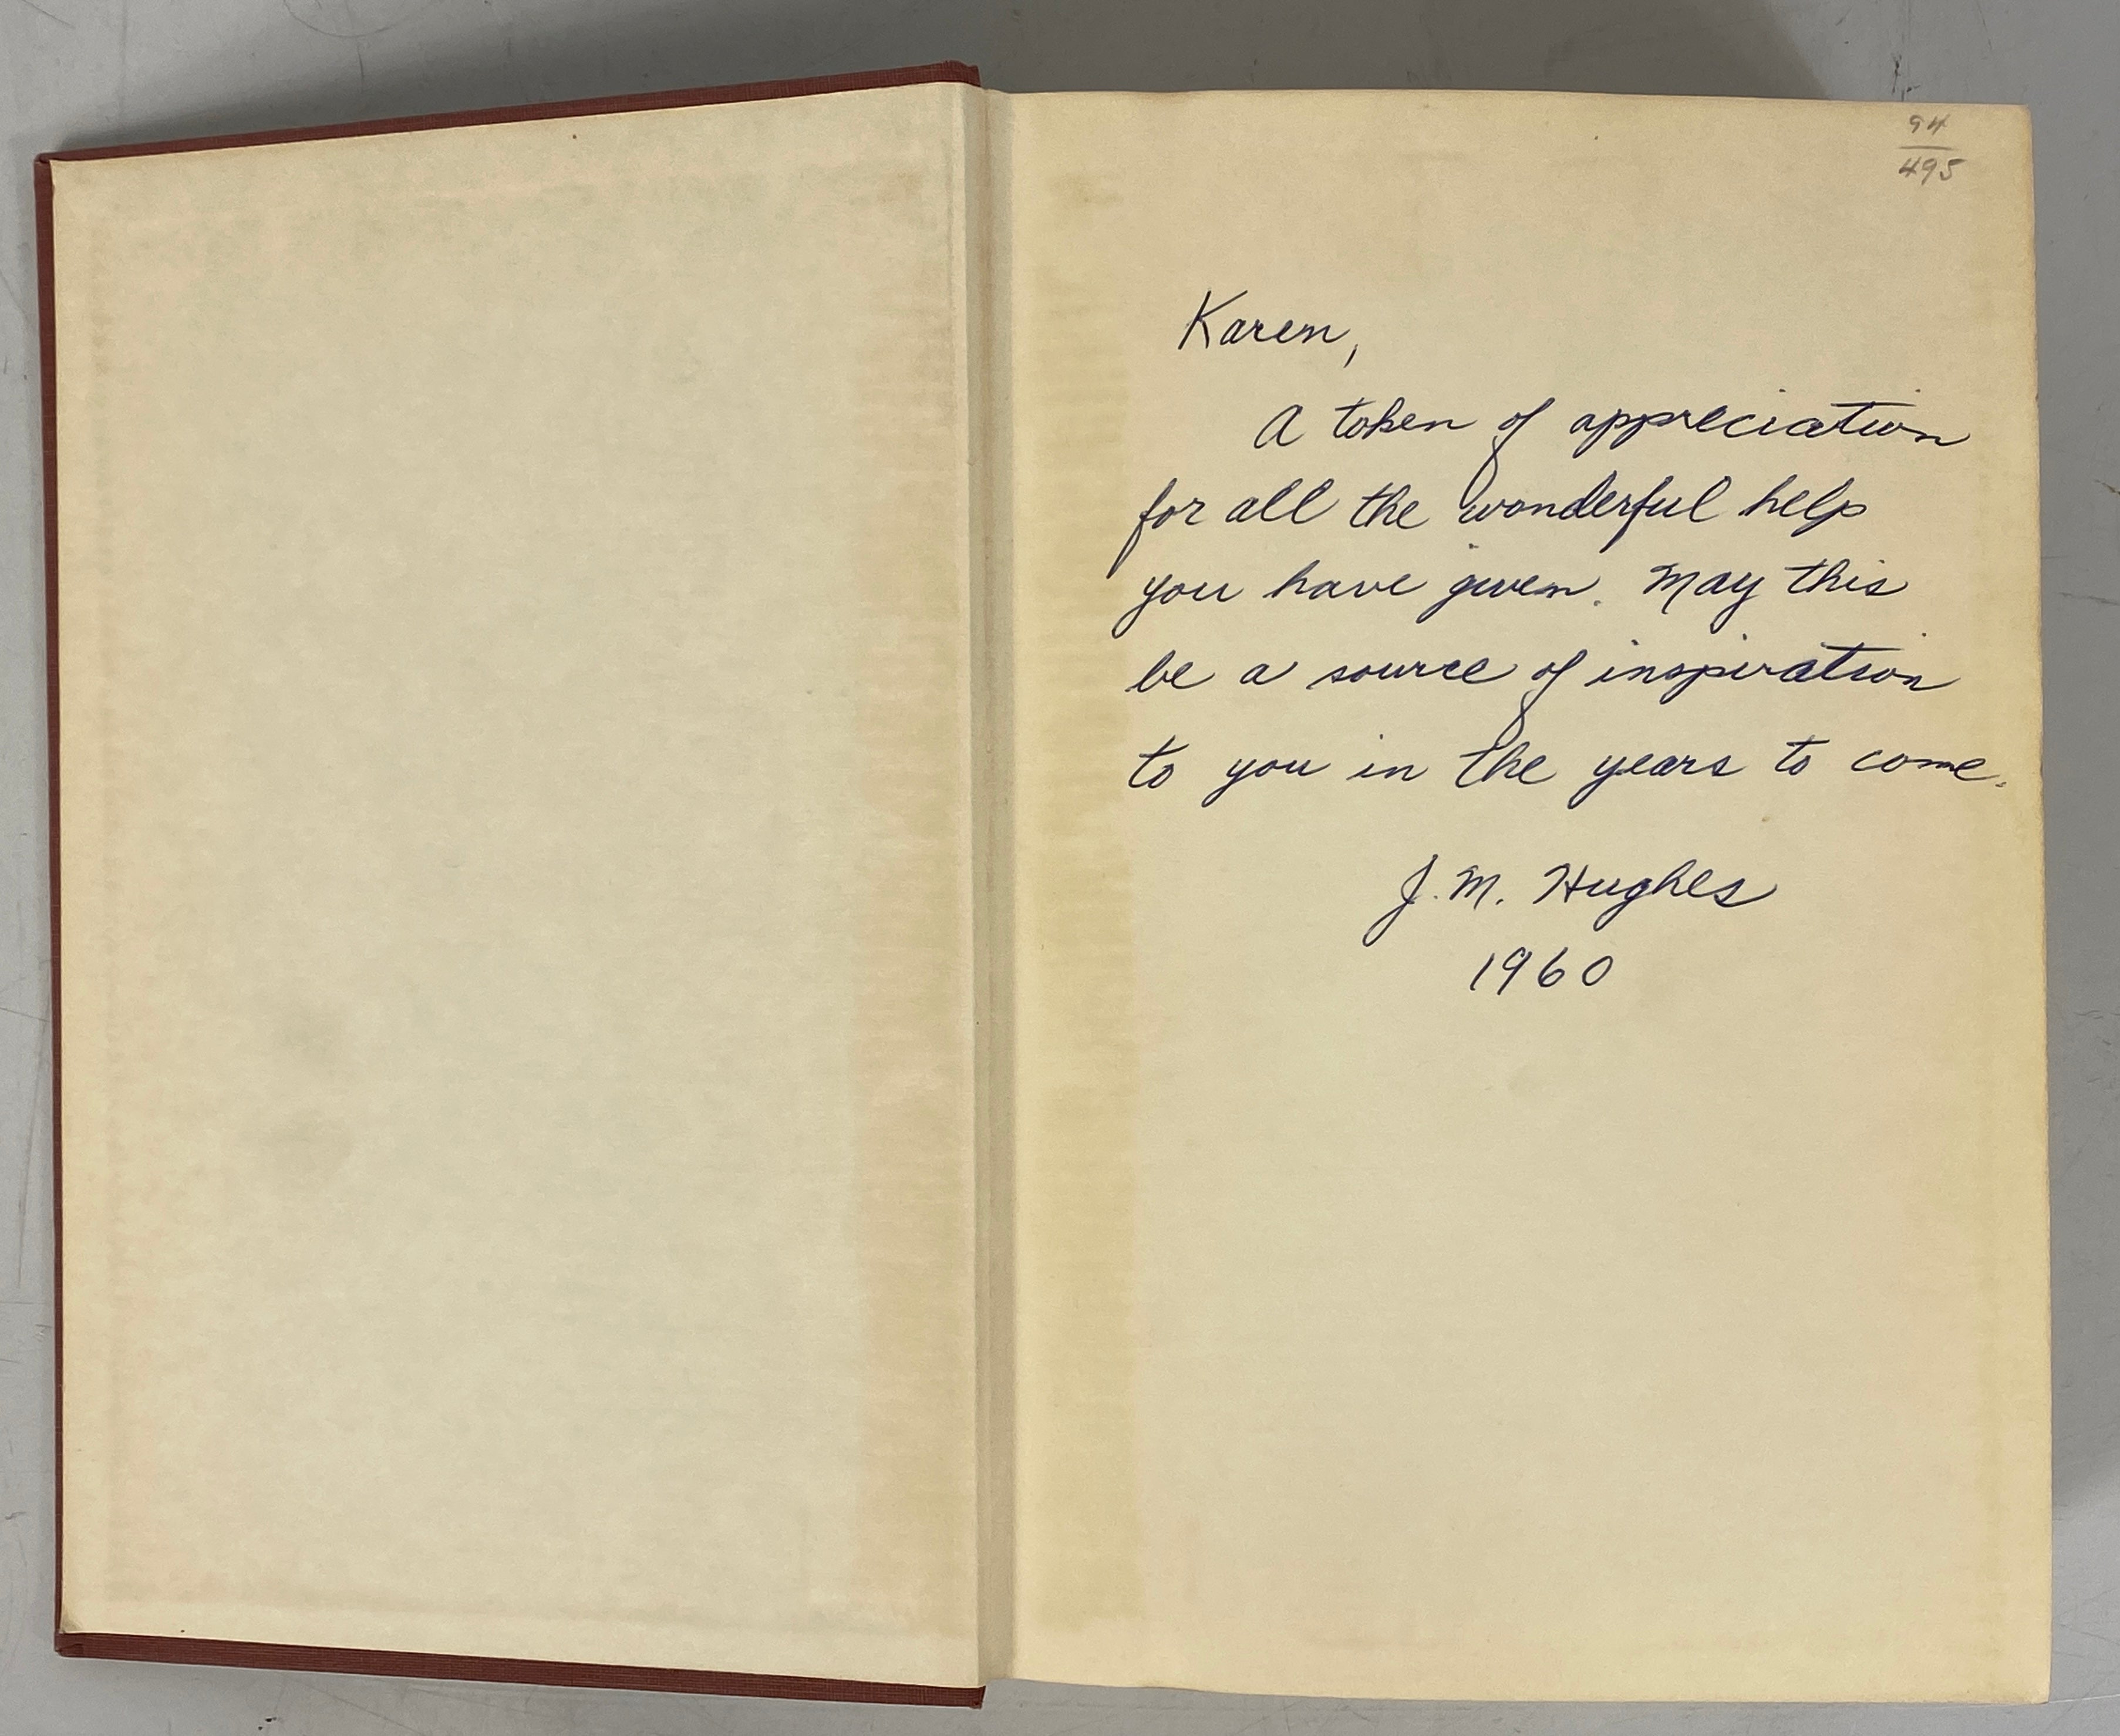 94
495
Karen,
A token of appreciation
for all the wonderful help
you have given. May this
be a source of inspiration
to you in the years to come.
J. M. Hughes
1960